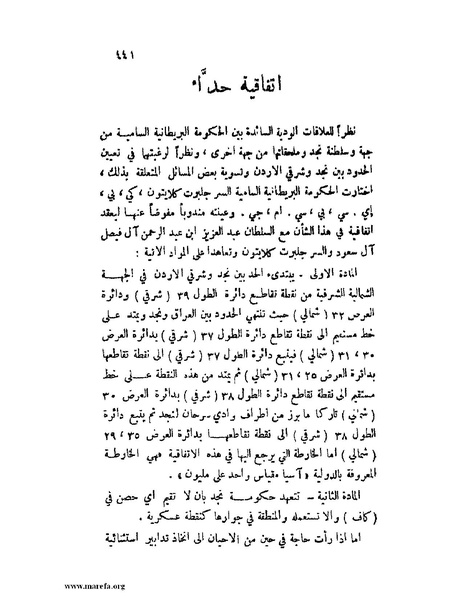 ٤٤١
اتفاقية حدَّاء
نظراً للعلاقات الودية السائدة بين الحكومة البريطانية السامية من
جهة وسلطنة نجد وملحقاتها من جهة اخرى ، ونظراً لرغبتها في تعيين
الحدود بين نجد وشرقي الاردن وتسوية بعض المسائل المتعلقة بذلك ،
اختارت الحكومة البريطانية السامية السر جلبرت كلايتون ، كي ، بي ،
إي . سي ، بي ، سي . ام ، جي . وعينته مندوباً مفوضاً عنها ليعقد
اتفاقية في هذا الشأن مع السلطان عبد العزيز ابن عبد الرحمن آل فيصل
آل سعود والسر جلبرت كلايتون وتعاهدا على المواد الآتية :
المادة الاولى - يبتدىء الحد بين نجد وشرقي الاردن في الجهة
الشمالية الشرقية من نقطة تقاطع دائرة الطول ٣٩ ( شرقي ) ودائرة
العرض ٣٢ ( شمالي ) حيث تنتهي الحدود بين العراق ونجد ويمتد على
خط مستقيم الى نقطة تقاطع دائرة الطول ٣٧ ( شرقي ) بدائرة العرض
٣٠ ، ٣١ ( شمالي ) فيتبع دائرة الطول ٣٧ ( شرقي ) الى نقطة تقاطعها
بدائرة العرض ٢٥ ، ٣١ ( شمالي ) ثم يمتد من هذه النقطة على خط
مستقيم الى نقطة تقاطع دائرة الطول ٣٨ ( شرقي ) بدائرة العرض ٣٠
( شمالي ) تاركا ما برز من اطراف وادي سرحان لنجد ثم يتبع دائرة
الطول ٣٨ ( شرقي ) الى نقطة تقاطعها بدائرة العرض ٣٥ ، ٢٩
( شمالي ) اما الخارطة التي يرجع اليها في هذه الاتفاقية فهي الخارطة
المعروفة بالدولية « آسيا مقياس واحد على مليون » .
المادة الثانية - تتعهد حكومة نجد بان لا تقيم اي حصن في
( كاف ) والا تستعمله والمنطقة في جوارها كنقطة عسكرية .
اما اذا رأت حاجة في حين من الاحيان الى اتخاذ تدابير استثنائية
www.marefa.org